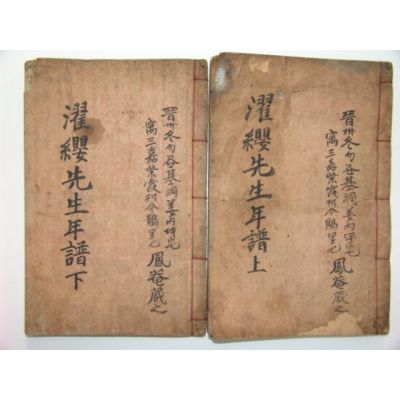 晉州冬勿谷基洞姜內坪宅
寓三嘉紫霞村今鶴里也
鳳菴藏之
濯纓先生年譜上
晉州冬勿谷基洞姜內坪宅
寓三嘉紫霞村今鶴里也
鳳菴藏之
濯纓先生年譜下